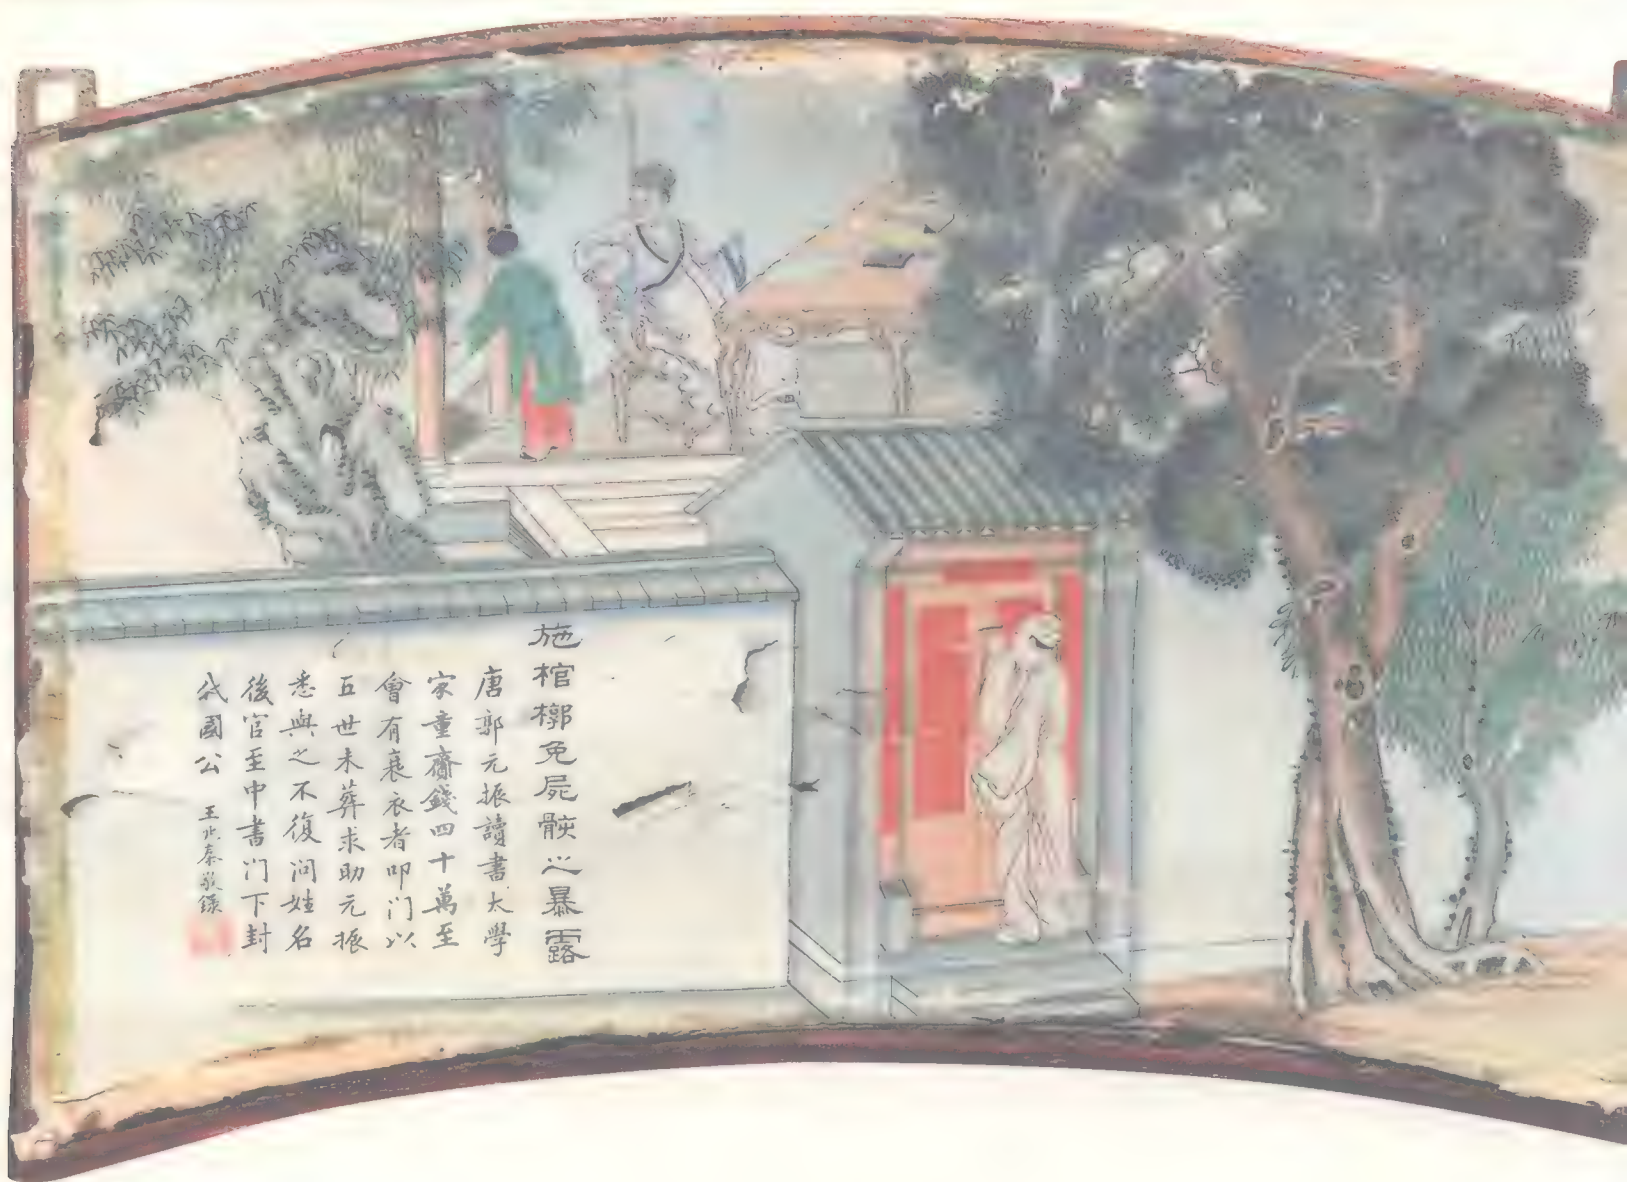 施棺槨免屍骸之暴露
唐郭元振讀書太學
家童齎錢四十萬至
會有衰衣者叩门以
五世未葬求助元振
悉與之不復问姓名
後官至中書门下封
代國公
王兆泰敬錄